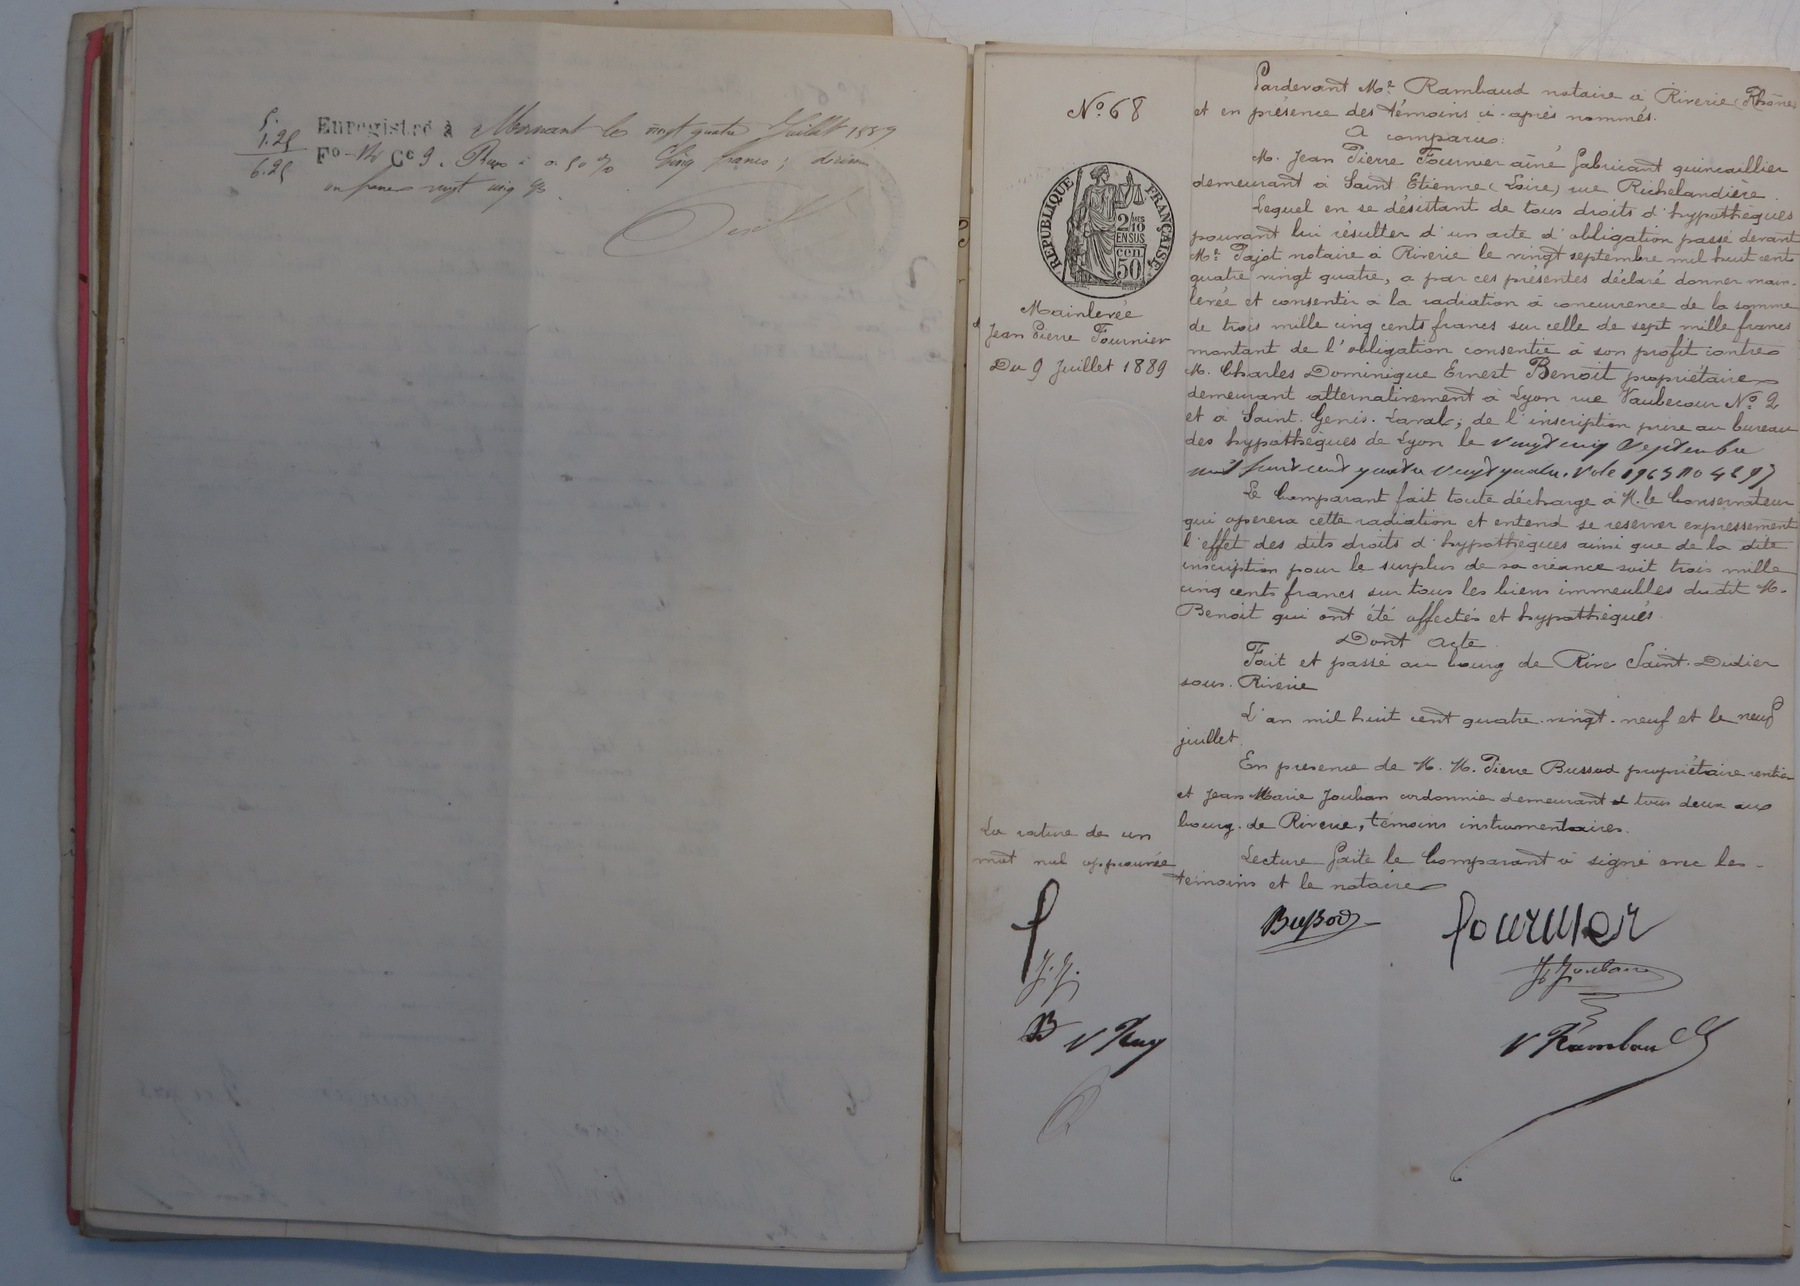 5.
1.25
6.25
Enregistré à Mornant le vingt quatre Juillet 1889
Fo C e 9. Reçu à 0.50 % Cinq francs ; décime
un franc vingt cinq c/s.
No. 68
RÉPUBLIQUE FRANÇAISE
2/10 EN SUS
50 cen
Mainlevée
Jean Pierre Fournier
Du 9 Juillet 1889
Pardevant Me. Rambaud notaire à Riverie (Rhône)
et en présence des témoins ci-après nommés.
A comparu:
M. Jean Pierre Fournier aîné fabricant quincaillier
demeurant à Saint Etienne (Loire) rue Richelandière.
Lequel en se désistant de tous droits d'hypothèques
pouvant lui résulter d'un acte d'obligation passé devant
Me. Pajot notaire à Riverie le vingt septembre mil huit cent
quatre vingt quatre, a par ces présentes déclaré donner main-
levée et consentir à la radiation à concurence de la somme
de trois mille cinq cents francs sur celle de sept mille francs
montant de l'obligation consentie à son profit contre
M. Charles Dominique Ernest Benoit propriétaire
demeurant alternativement à Lyon rue Vaubecour No. 2
et à Saint. Genis. Laval; de l'inscription prise au bureau
des hypothèques de Lyon le vingt cinq Septembre
mil huit cent quatre vingt quatre. Vole 1963 no
Le Comparant fait toute décharge à M. le Conservateur
qui operera cette radiation et entend se reserver expressement
l'effet des dits droits d'hypothèques ainsi que de la dite
inscription pour le surplus de sa créance soit trois mille
cinq cents francs sur tous les biens immeubles dudit M.
Benoit qui ont été affectés et hypothéqués.
Dont Acte
Fait et passé au bourg de Rive Saint. Didier
sous. Riverie
L'an mil huit cent quatre. vingt. neuf et le neuf
juillet.
En presence de M. M. Pierre Bussod propriétaire rentier
et Jean Marie Jouban cordonnier demeurant tous deux au
bourg. de Riverie, témoins instrumentaires.
Lecture faite le Comparant à signé avec les
témoins et le notaire
La rature de un
mot nul approuvée
Bussod
fournier
J. Jouban
f
J. J.
B
V Rambaud